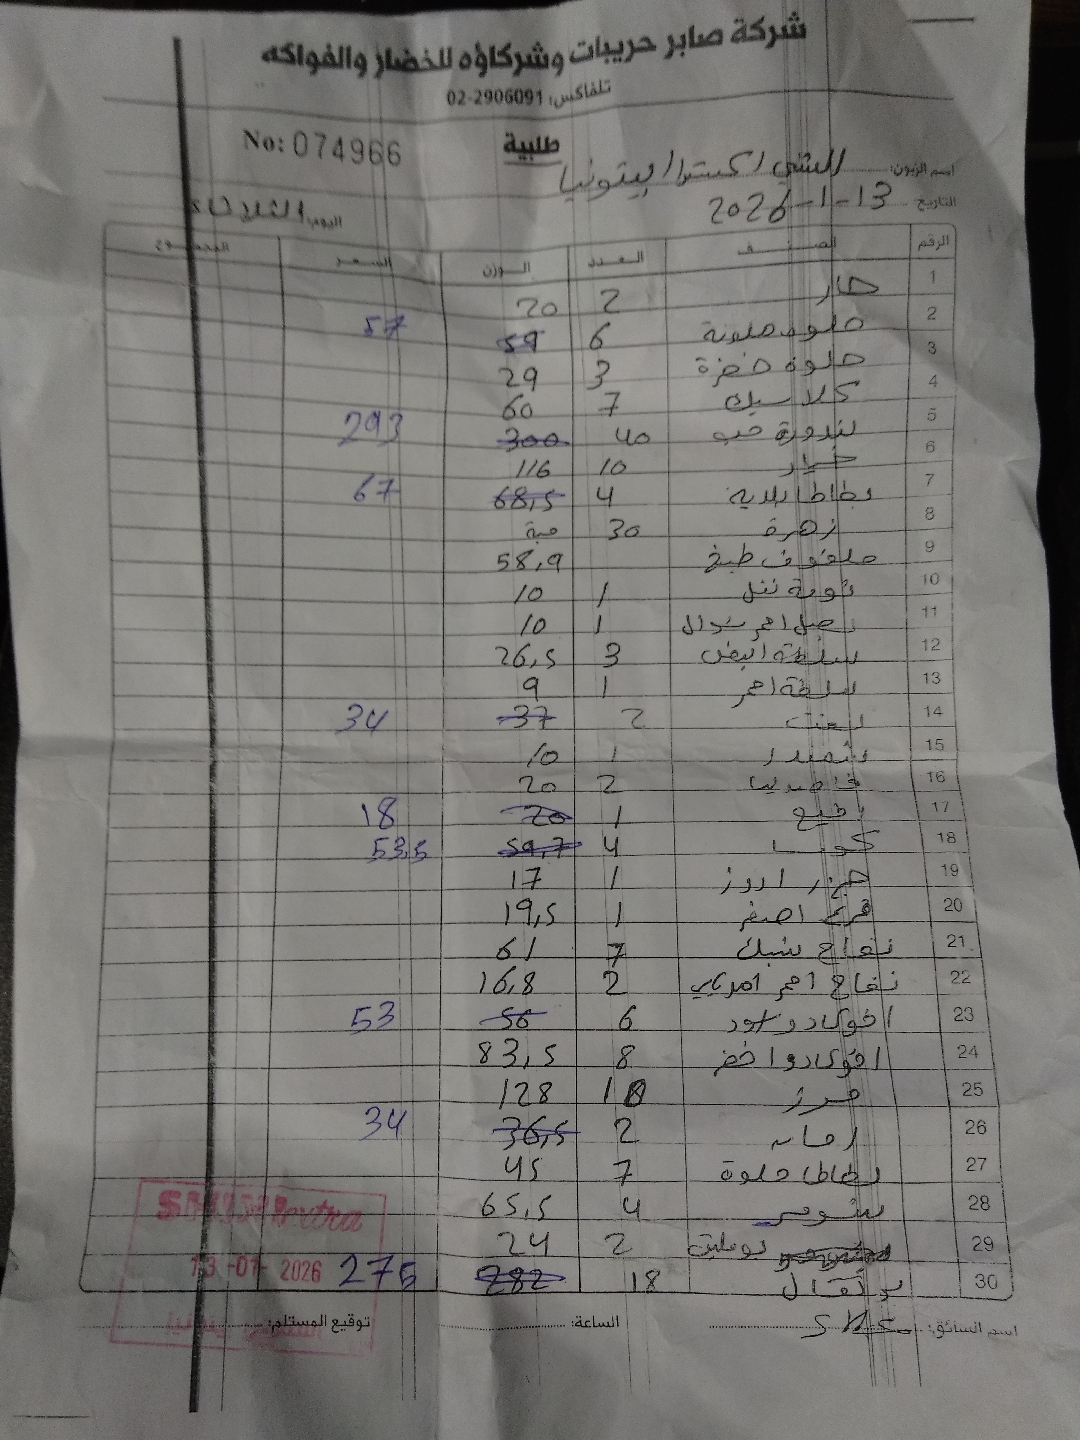 شركة صابر حريبات وشركاؤه للخضار والفواكه
تلفاكس: 02-2906091
No: 074966
طلبية
اسم الزبون: الشني اكسترا بيتونيا
التاريخ: 13-1-2026
اليوم: الثلاثاء
الرقم الصنف العدد الوزن السعر المجموع
1 حار 2 20
2 حلوة ملونة 6 59 57
3 حلوة خضرة 3 29
4 كلاسيك 7 60
5 بندورة حب 40 300 293
6 خيار 10 116
7 بطاطا بلدية 4 68,5 67
8 زهرة 30 حبة
9 ملفوف طبخ 58,9
10 ثومة تنل 1 10
11 بصل احمر شوال 1 10
12 سلطة ابيض 3 26,5
13 سلطة احمر 1 9
14 لفت 2 37 34
15 شمندر 1 10
16 2 20
17 بطيخ 1 20 18
18 كوسا 4 59,7 53,5
19 جزر اروز 1 17
20 قرع اصفر 1 19,5
21 تفاح سنبل 7 61
22 تفاح احمر امريكي 2 16,8
23 افوكادو اسود 6 56 53
24 افوكادو اخضر 8 83,5
25 موز 10 128
26 رمان 2 36,5 34
27 بطاطا حلوة 7 45
28 بومر 4 65,5
29 بوملي 2 24
30 برتقال 18 282 275
اسم السائق:
الساعة:
توقيع المستلم:
extra
13 -01- 2026